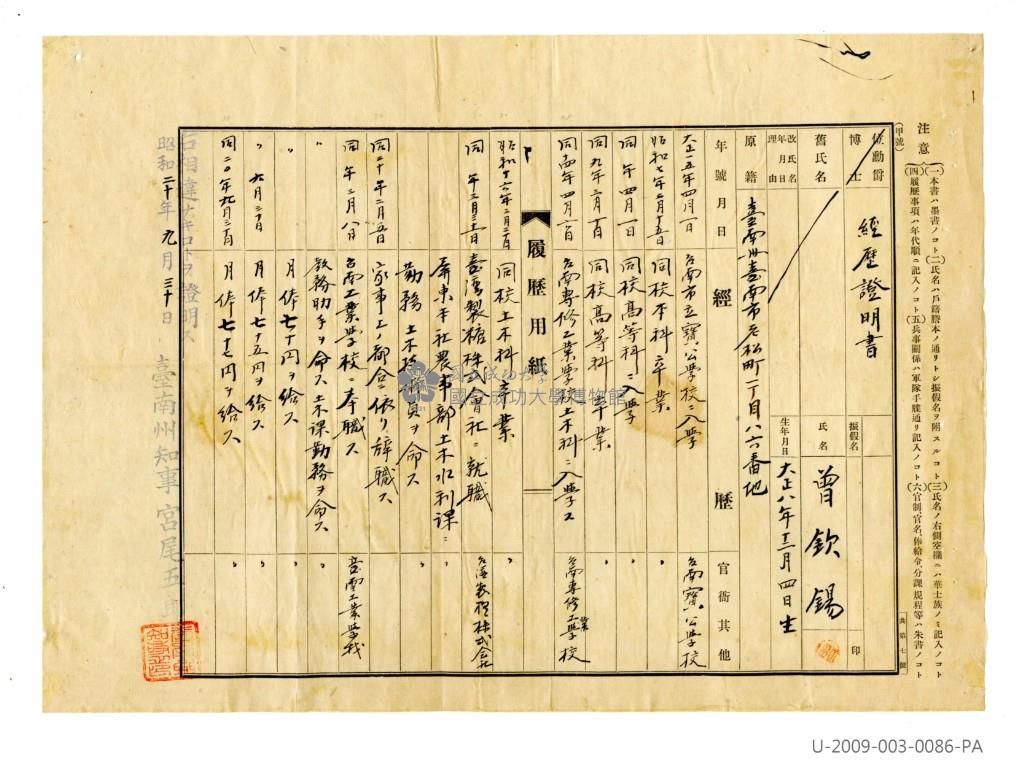 注意
(一)本書ハ墨書ノコト(二)氏名ハ戶籍謄本ノ通リトシ振假名ヲ附スルコト(三)氏名ノ右側空欄ニハ華士族ノミ記入ノコト
(四)履歷事項ハ年代順ニ記入ノコト(五)兵事關係ハ軍隊手牒通リ記入ノコト(六)官制、官名、俸給令、分課規程等ハ朱書ノコト
(甲號)
位勳爵
博士
經歷證明書
振假名
印
舊氏名
氏名
曾欽錫
改氏名年月日理由
生年月日
大正八年十二月四日生
原籍
臺南州臺南市老松町一丁目八六番地
年號月日
經歷
官衙其他
大正一五年四月一日
台南市立寶公學校ニ入學
台南寶公學校
昭和七年三月十五日
同校本科卒業
〃
同年四月一日
同校高等科ニ入學
〃
同校高等科卒業
〃
台南專修工業學校土木科ニ入學ス
台南專修工業學校
履歷用紙
同校土木科卒業
〃
臺灣製糖株式會社ニ就職
台湾製糖株式会社
屏東本社農事部土木水利課ニ
勤務 土木技術員ヲ命ス
〃
同二十年二月五日
家事上ノ都合ニ依リ辭職ス
〃
同年三月八日
台南工業學校ニ奉職ス
臺南工業學校
教務助手ヲ命ス土木課勤務ヲ命ス
〃
〃
月俸七十円ヲ給ス
〃
〃 六月三十日
月俸七十五円ヲ給ス
同二〇年九月三〇日
月俸七十七円ヲ給ス
右相違ナキコトヲ證明ス
昭和二十年九月三十日
臺南州知事宮尾五郎
國立成功大學
國立成功大學博物館
U-2009-003-0086-PA